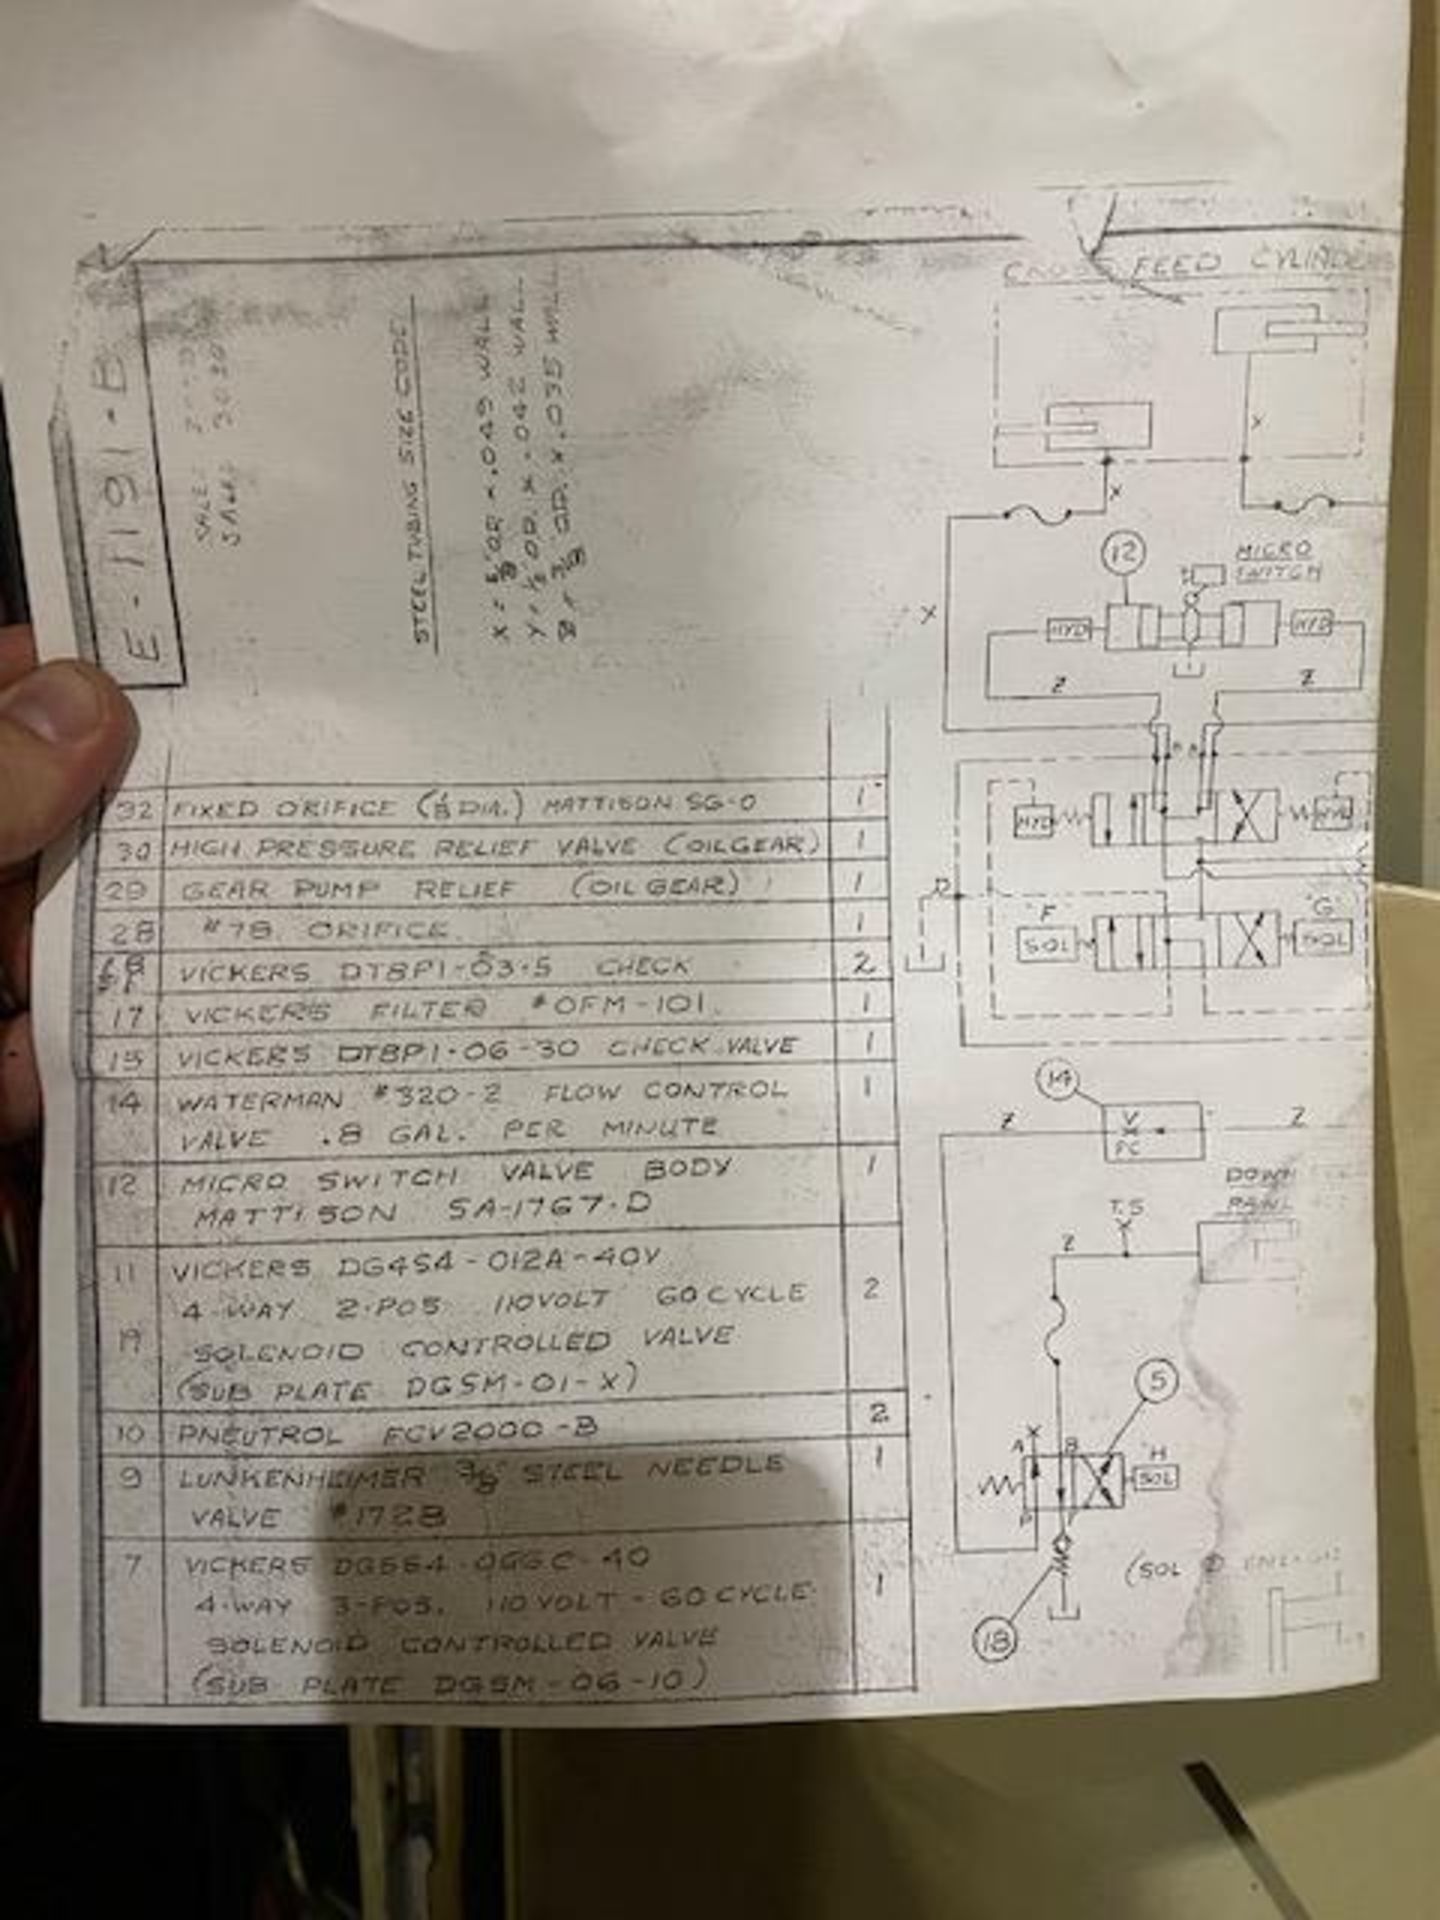 E-1191-B
STEEL TUBING SIZE CODE
X = 5/8 OD × .049 WALL
Y = 1/2 OD. × .042 WAL
3/8 OD. × .035 WALL
32 FIXED ORIFICE (1/8 DIA.) MATTISON SG-0 1
30 HIGH PRESSURE RELIEF VALVE (OILGEAR) 1
29 GEAR PUMP RELIEF (OILGEAR) 1
28 #78 ORIFICE 1
18 VICKERS DT8P1-03-5 CHECK 2
17 VICKERS FILTER #OFM-101 1
15 VICKERS DT8P1-06-30 CHECK VALVE 1
14 WATERMAN #320-2 FLOW CONTROL 1
VALVE .8 GAL. PER MINUTE
12 MICRO SWITCH VALVE BODY 1
MATTISON SA-1767-D
11 VICKERS DG4S4-012A-40Y
4-WAY 2-POS 110VOLT 60CYCLE 2
19 SOLENOID CONTROLLED VALVE
(SUB PLATE DGSM-01-X)
10 PNEUTROL FCV2000-B 2
9 LUNKENHEIMER 3/8" STEEL NEEDLE 1
VALVE #1728
7 VICKERS DG5S4-066C-40
4-WAY 3-POS. 110VOLT-60CYCLE 1
SOLENOID CONTROLLED VALVE
(SUB PLATE DGSM-06-10)
CROSS FEED CYLINDERS
X
X
12
MICRO
SWITCH
X
HYD
HYD
Z
Z
HYD
HYD
"F"
SOL
"G"
SOL
14
Z
V
FC
Z
DOWN
T.S
X
Z
5
A
B
"H"
SOL
P
18
(SOL